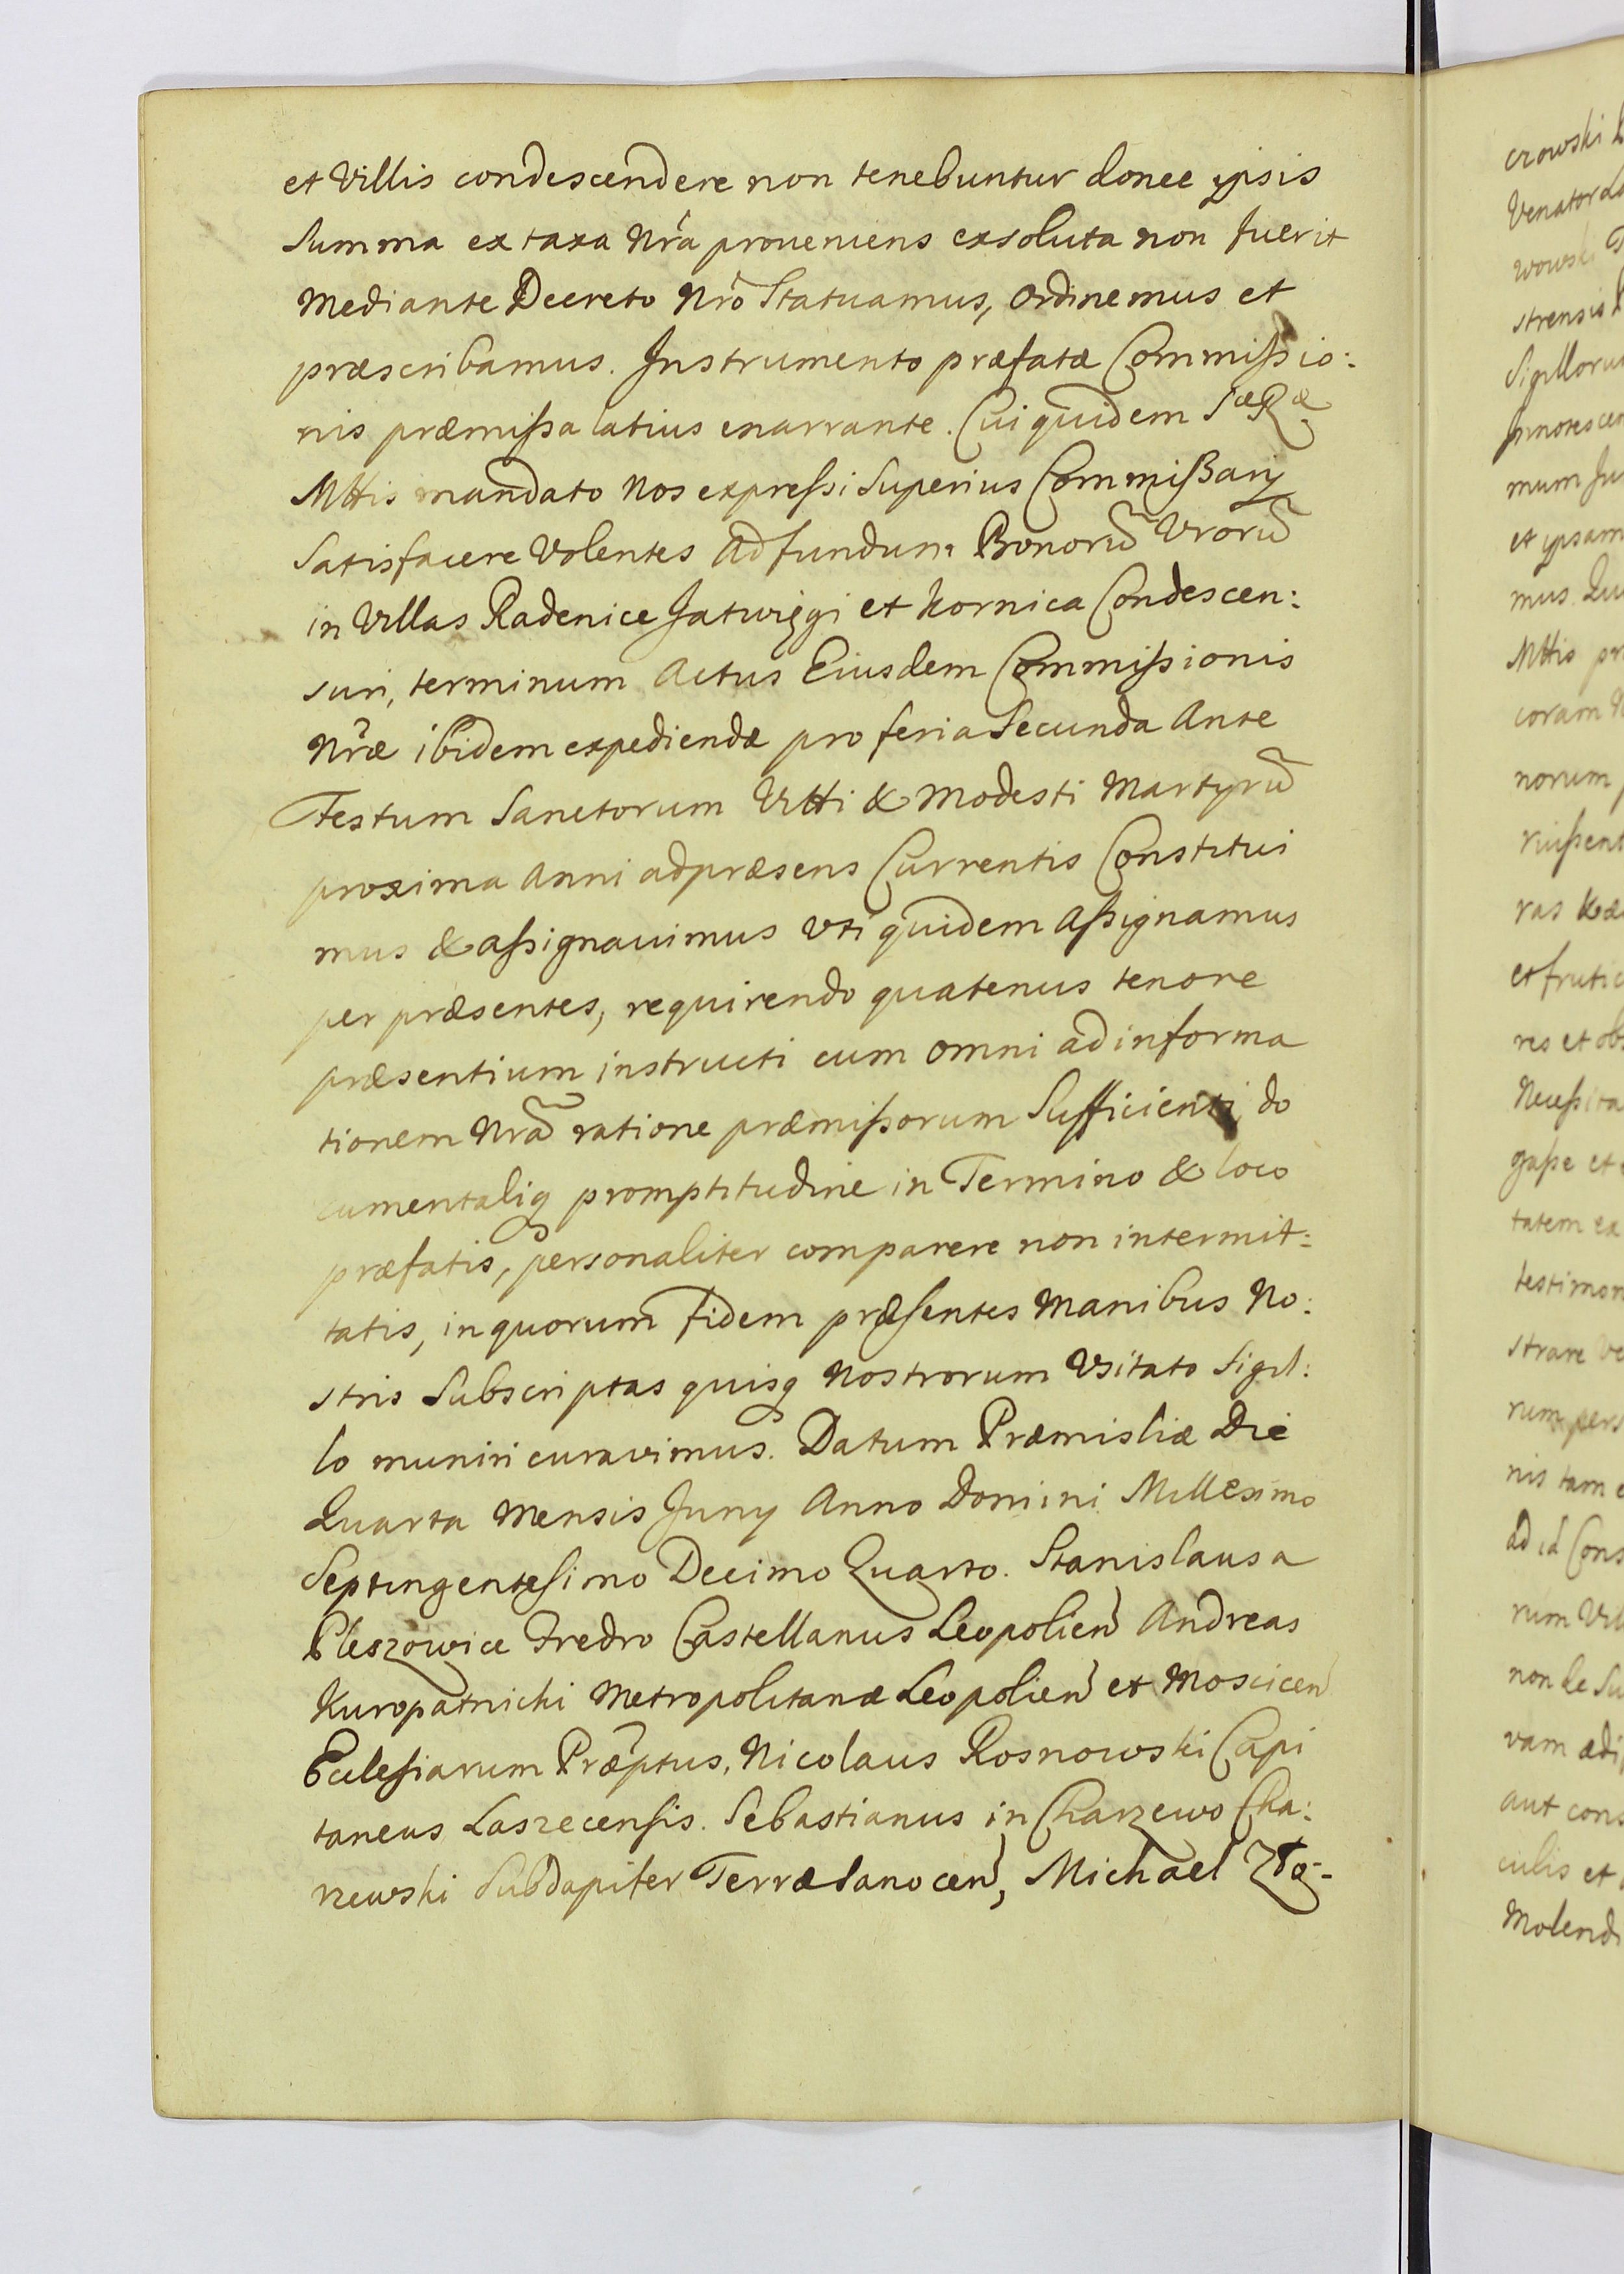 et Villis condescendere non tenebuntur donec ypsis
Summa ex taxa Nr̃a proueniens exsoluta non fuerit
Mediante Decreto Nr̃o Statuamus, Ordinemus et
præscribamus. Instrumento præfatæ Commißio:
nis præmißa latius enarrante. Cui quidem Sæ Ræ
Mttis mandato Nos expreßi Superius Commißarij
Satisfacere Volentes Ad fundum Bonorũ Vrorũ
in Villas Radenice Jatwięgi et Hornica Condescen:
suri, terminum Actus Eiusdem Commißionis
Nr̃æ ibidem expediendæ pro feria Secunda Ante
Festum Sanctorum Vitti & Modesti Martyrũ
proxima Anni ad præsens Currentis Constitui
mus & aßignauimus vti quidem Aßignamus
per præsentes, requirendo quatenus tenore
præsentium instructi cum omni ad informa
tionem Nrã ratione præmißorum Sufficienti do
cumentaliq promptitudine in Termino & loco
præfatis, personaliter comparere non intermit:
tatis, in quorum fidem præsentes Manibus No:
stris Subscriptas quisq Nostrorum Vsitato Sigil:
lo muniri curavimus. Datum Præmisliæ Die
Quarta Mensis Juny Anno Domini Millesimo
Septingentesimo Decimo Quarto. Stanislaus a
Pleszowice Fredro Castellanus Leopolien̄ Andreas
Kuropatnichi Metropolitanæ Leopolien̄ et Moscicen̄
Ecclesiarum Præptus, Nicolaus Rosnowski Capi
taneus Laszecensis. Sebastianus in Charzewo Cha:
rzewski Subdapifer Terræ Sanocen̄,
Michael